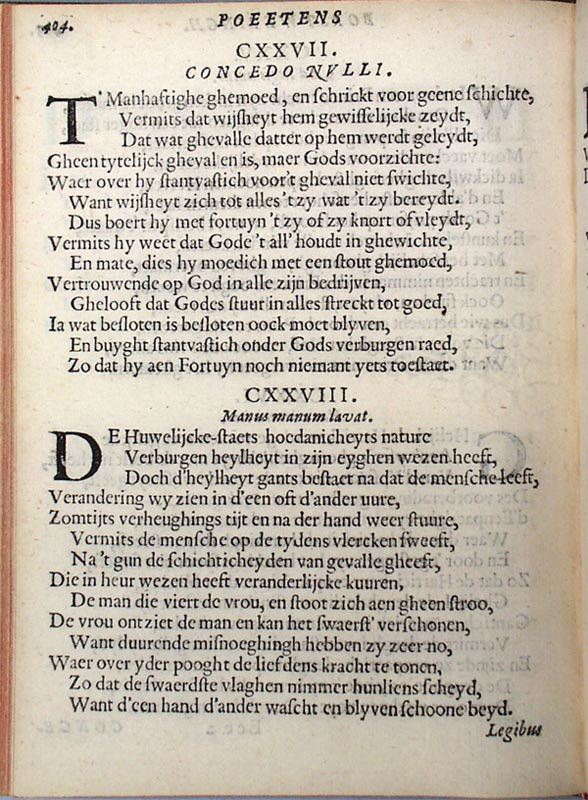 404.
POEETENS
CXXVII.
CONCEDO NVLLI.
T' Manhaftighe ghemoed, en schrickt voor geene schichte,
Vermits dat wijsheyt hem gewisselijcke zeydt,
Dat wat ghevalle datter op hem werdt geleydt,
Gheen tytelijck gheval en is, maer Gods voorzichte:
Waer over hy stantvastich voor't gheval niet swichte,
Want wijsheyt zich tot alles 't zy wat 't zy bereydt.
Dus boert hy met fortuyn 't zy of zy knort of vleydt,
Vermits hy weet dat Gode 't all' houdt in ghewichte,
En mate, dies hy moedich met een stout ghemoed,
Vertrouwende op God in alle zijn bedrijven,
Ghelooft dat Godes stuur in alles streckt tot goed,
Ia wat besloten is besloten oock moet blyven,
En buyght stantvastich onder Gods verburgen raed,
Zo dat hy aen Fortuyn noch niemant yets toestaet.
CXXVIII.
Manus manum lavat.
DE Huwelijcke-staets hoedanicheyts nature
Verburgen heylheyt in zijn eyghen wezen heeft,
Doch d'heylheyt gants bestaet na dat de mensche leeft,
Verandering wy zien in d'een oft d'ander uure,
Zomtijts verheughings tijt en na der hand weer stuure,
Vermits de mensche op de tydens vlercken sweeft,
Na 't gun de schichticheyden van gevalle gheeft,
Die in heur wezen heeft veranderlijcke kuuren,
De man die viert de vrou, en stoot zich aen gheen stroo,
De vrou ontziet de man en kan het swaerst' verschonen,
Want duurende misnoeghingh hebben zy zeer no,
Waer over yder pooght de liefdens kracht te tonen,
Zo dat de swaerdste vlaghen nimmer hunliens scheyd,
Want d'een hand d'ander wascht en blyven schoone beyd.
Legibus